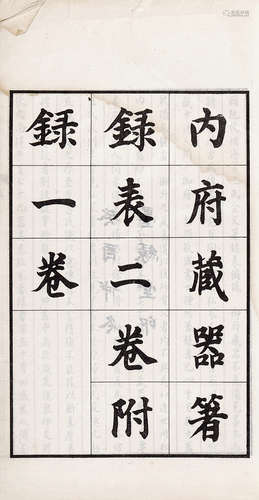 内府藏器箸
録表二卷附
録一卷